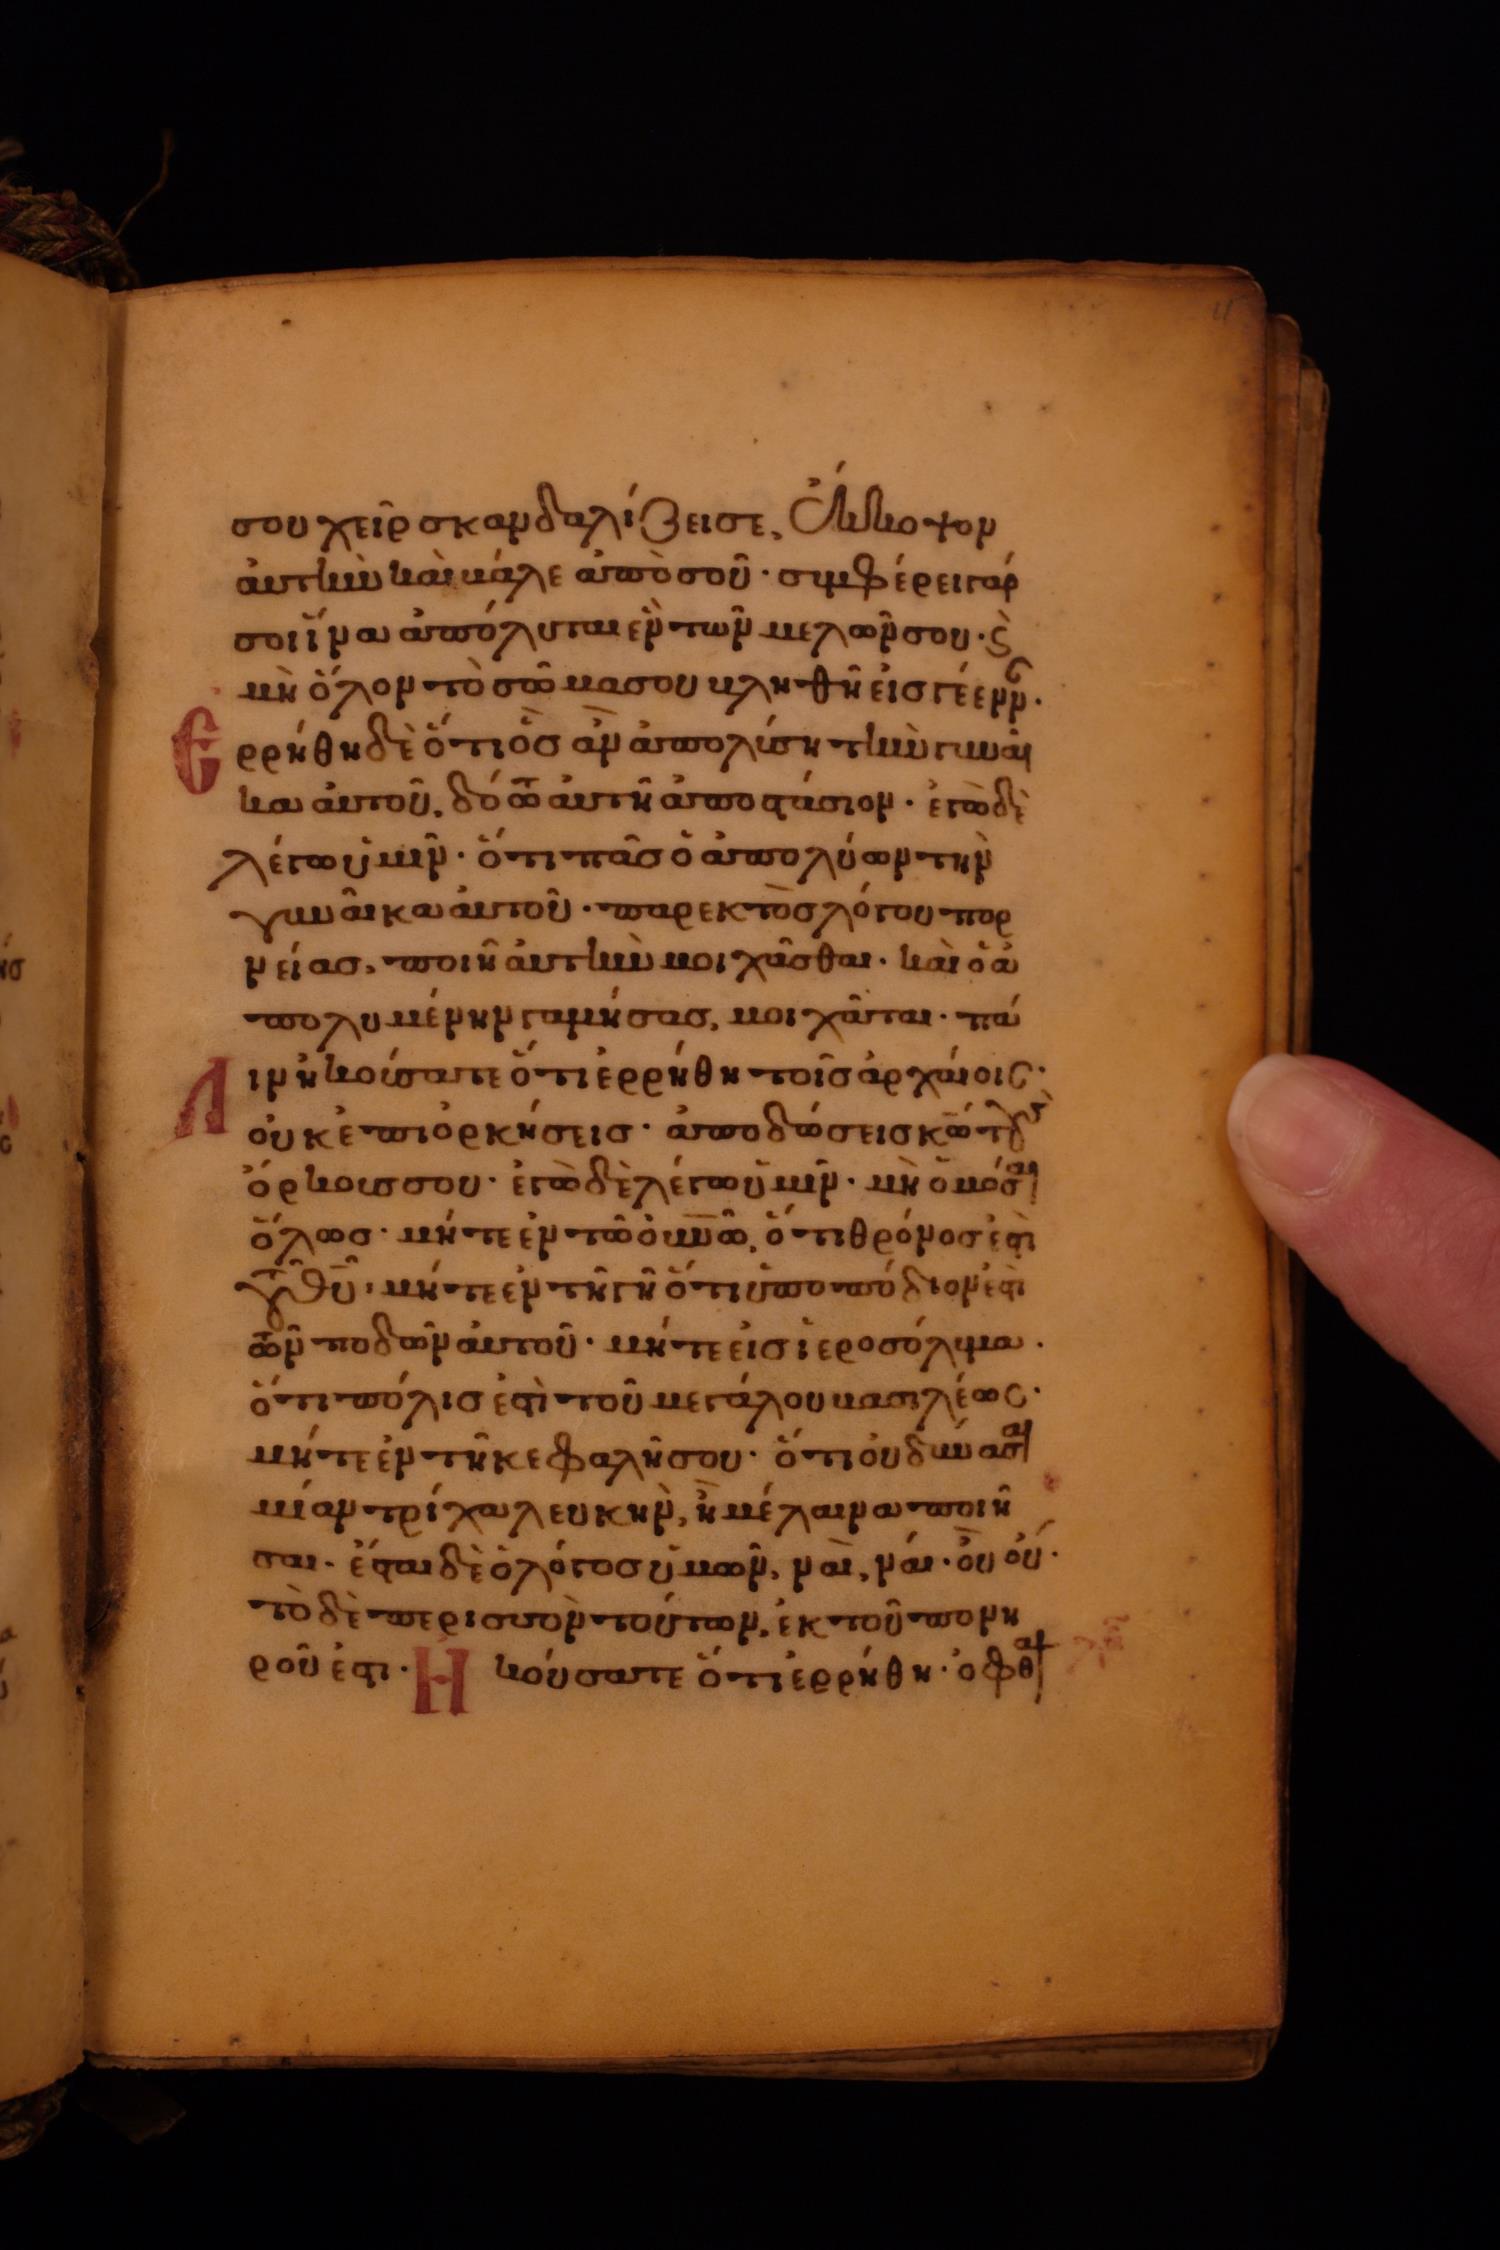 σου χεὶρ σκανδαλίζει σε, ἔκκοψον
ἀυτὴν καὶ βάλε ἀπὸ σοῦ · συμφέρει γάρ
σοι ἵ̈να ἀπόληται ἓν τῶν μελῶν σου · ϗ
μὴ ὅλον τὸ σῶμα σου βληθῆ εἰς γέενν ·
Ερρήθη δὲ ὅτι ὃς ἂν ἀπολύση τὴν γυναῖ
κα ἀυτοῦ, δότω ἀυτῆ ἀποστάσιον · ἐγὼ δὲ
λέγω ὑμῖν · ὅτι πᾶσ ὁ ἀπολύων τὴν
γυναῖκα ἀυτοῦ · παρεκτὸσ λόγου πορ
νείασ, ποιῆ ἀυτὴν μοιχᾶσθαι · καὶ ὁ ἀ
πολυμένην γαμήσασ, μοιχᾶται · πά
Λιν ἠκούσατε ὅτι ἐρρήθη τοῖσ ἀρχαίοις ·
ὀυκ ἐπιὀρκήσεισ · ἀποδώσεισ κ̅ω̅ τοὺς
ὅρκουσ σου · ἐγὼ δὲ λέγω ὑμῖν · μὴ ὀμόσαι
ὅλωσ · μήτε ἐν τῶ ὀυ̅νῶ, ὅτι θρόνοσ ἐστὶ
τοῦ θ̅υ̅, μήτε ἐν τῆ γῆ ὅτι ὑποπόδιον ἐστὶ
τῶν ποδῶν ἀυτοῦ · μήτε εἰσ ἱεροσόλυμα ·
ὅτι πόλισ ἐστὶ τοῦ μεγάλου βασιλέως ·
μήτε ἐν τῆ κεφαλῆ σου · ὅτι ὀυ δύνασαι
μίαν τρίχα λευκὴν, ἢ μέλαινα ποιῆ
σαι · ἔσται δὲ ὁ λόγοσ ὑμῶν, ναὶ, ναί · ὀὺ ὀύ ·
τὸ δὲ περισσὸν τούτων, ἐκ τοῦ πονη
ροῦ ἐστι · Ἠκούσατε ὅτι ἐρρήθη · ὀφθαλ